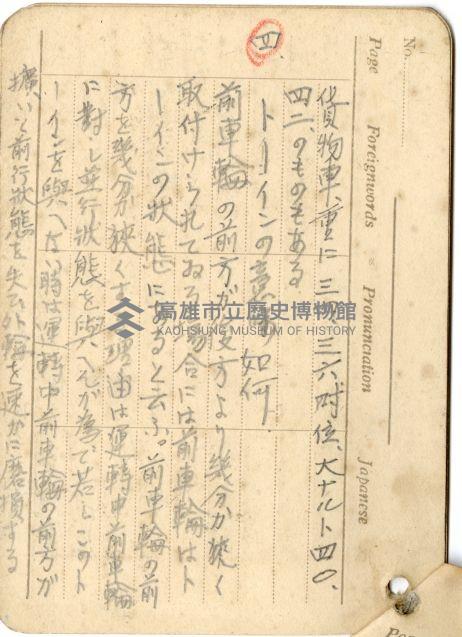 No.
Page Foreignwords Pronunciation Japanese
四、
貨物車、重に三四、三六吋位、大ナルト四〇、
四二、のものもある
トーインの意義如何.
前車輪の前方が後方より幾分か狹く
取付けられてゐる場合には前車輪はト
ーインの狀態にあると云ふ。前車輪の前
方を幾分か狹くする理由は運轉中前車輪
に對し並行狀態を與へんが為で若しこのト
ーインを與へない時は運轉中前車輪の前方が
擴いて前行狀態を失ひ外輪を速かに磨損する
高雄市立歷史博物館
KAOHSIUNG MUSEUM OF HISTORY